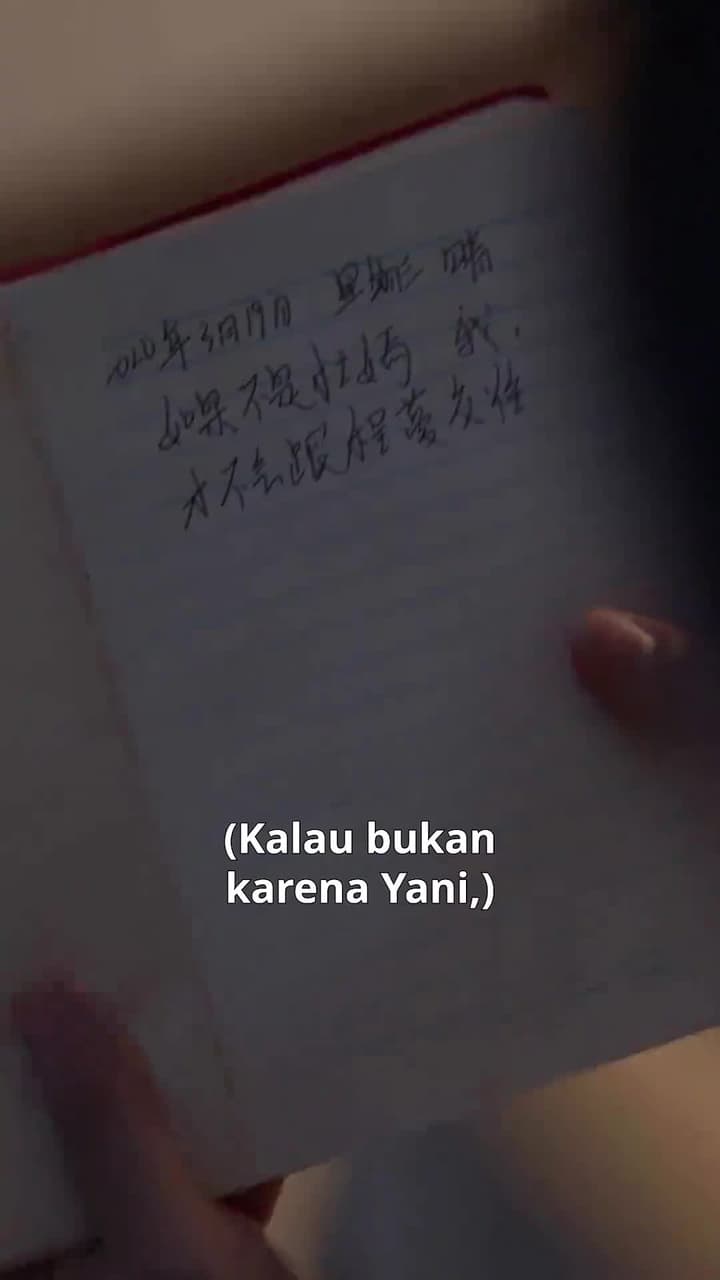 2020年3月19日 星期三 晴
如果不是杜嫣 我,
才不会跟程蔓
(Kalau bukan
karena Yani,)